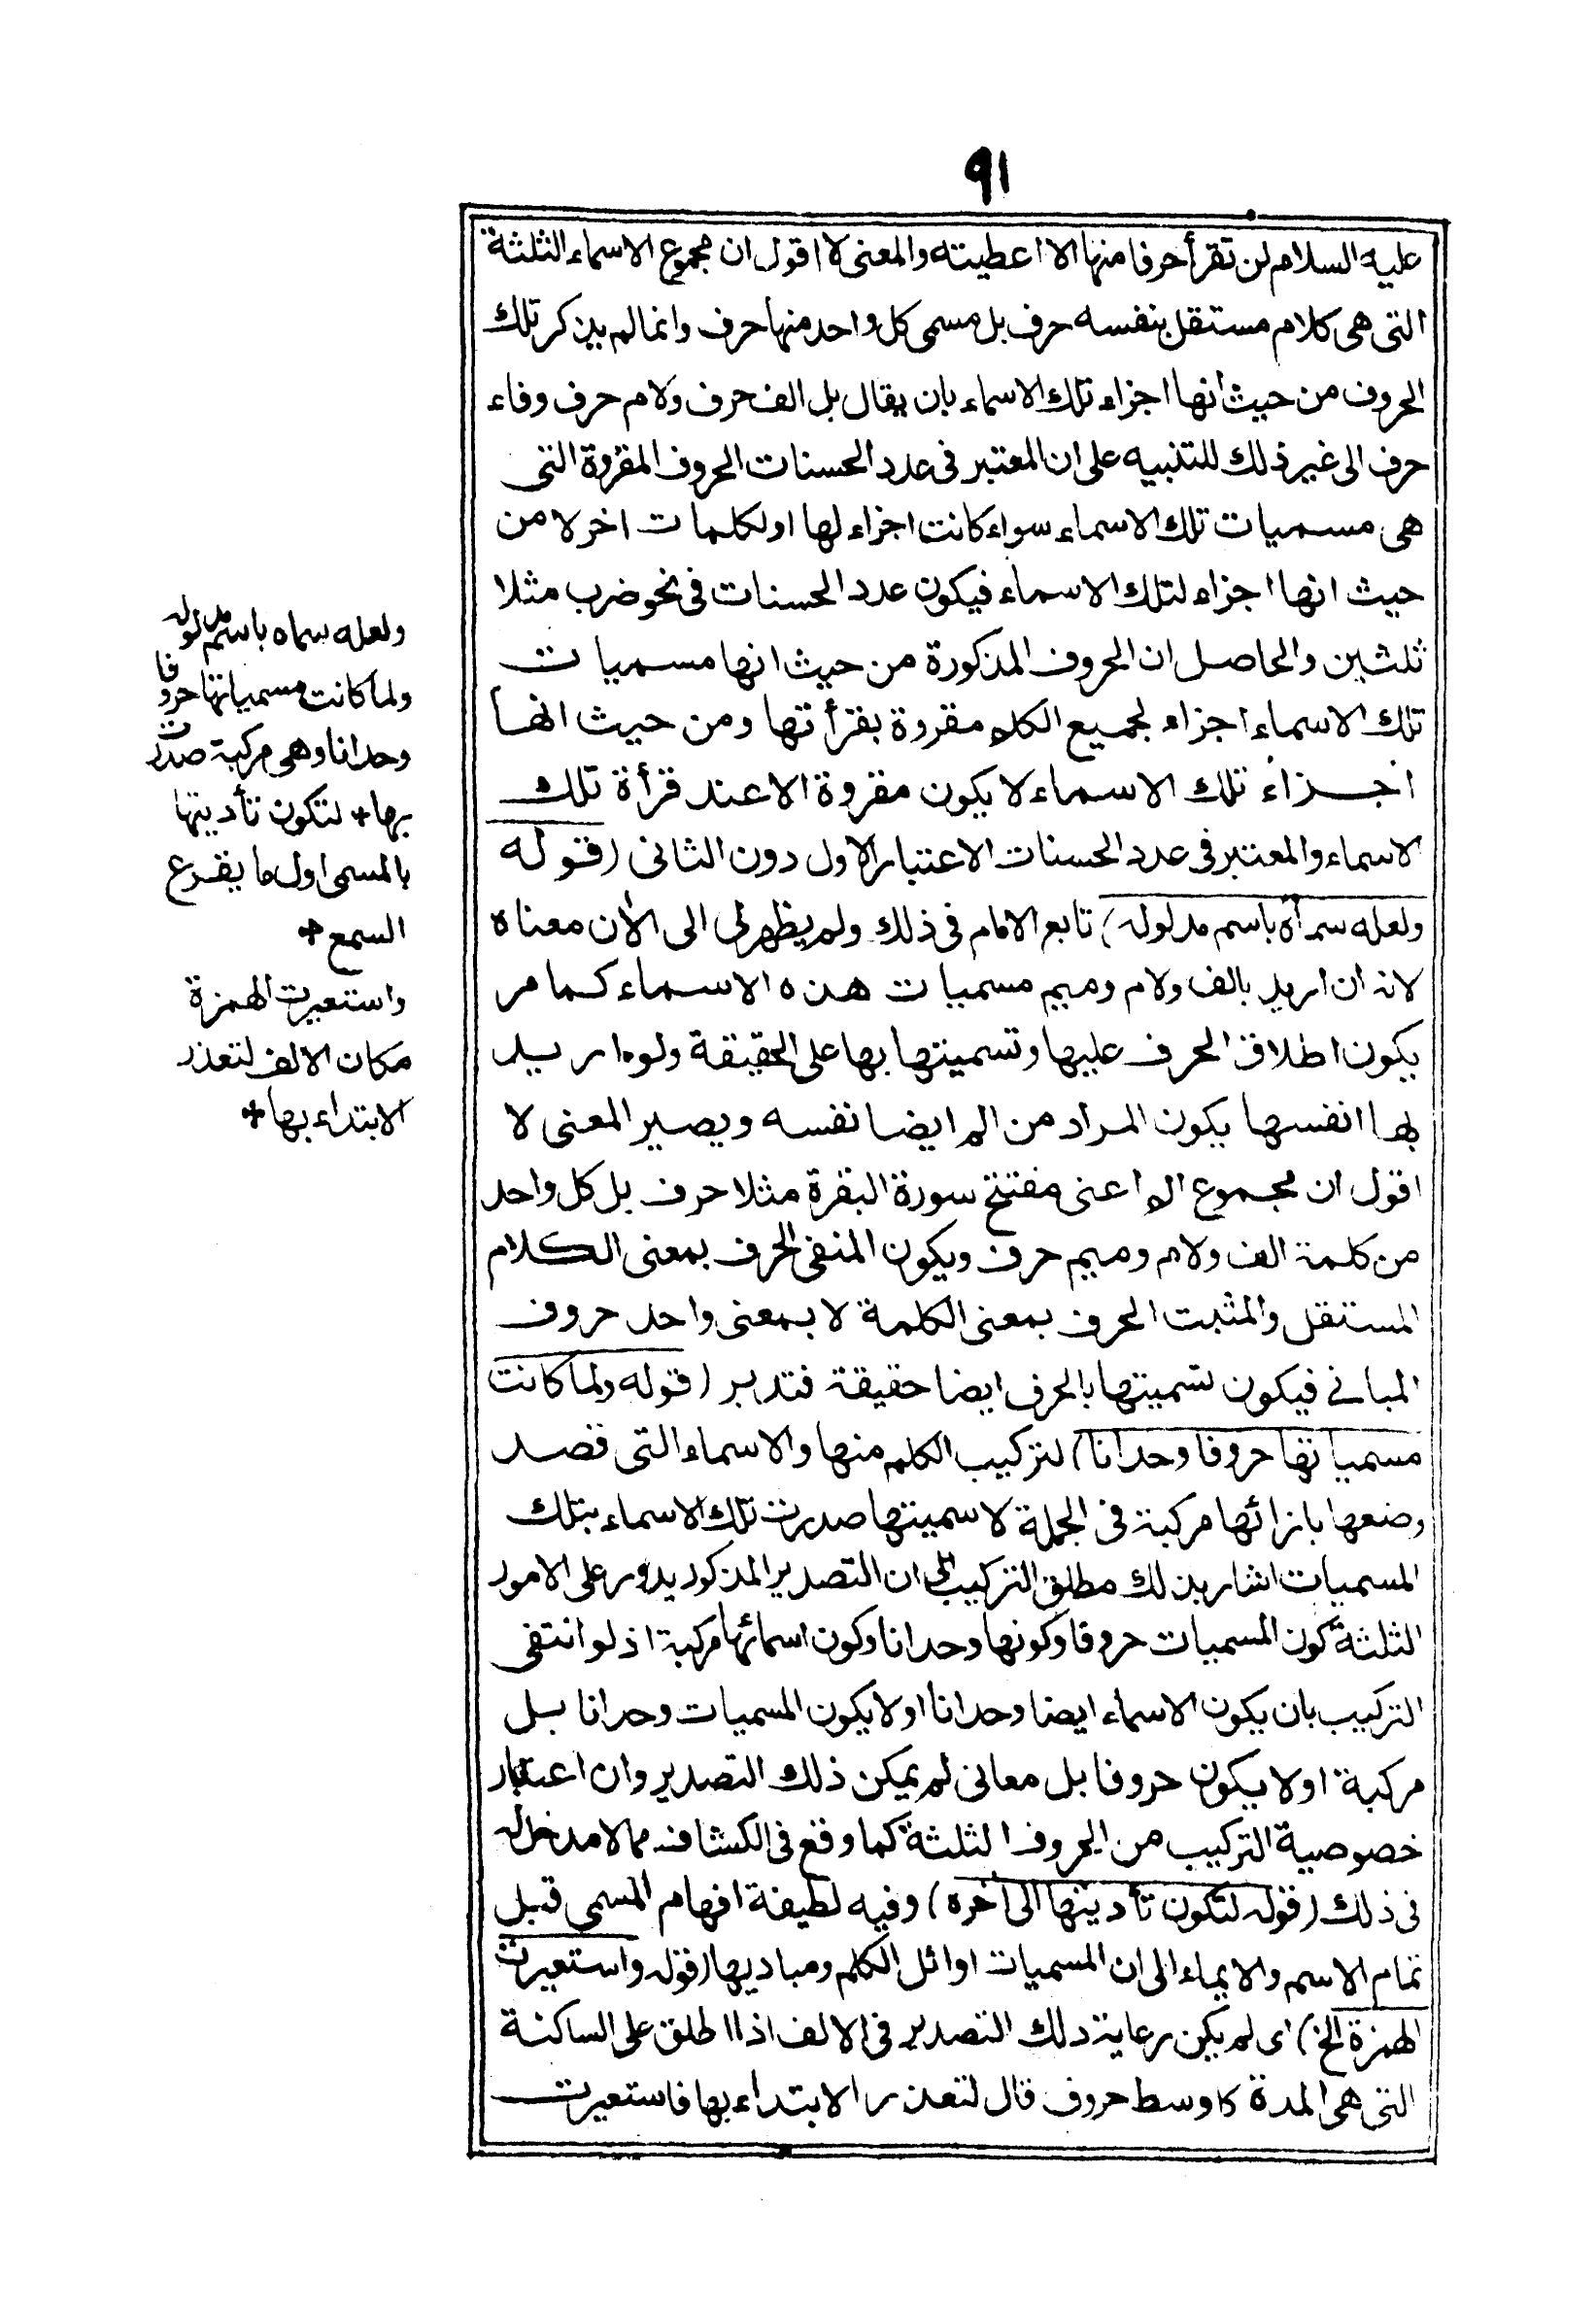 ٩١
عليه السلام لن تقرأ حرفا منها الا اعطيته والمعنى لا اقول ان مجموع الاسماء الثلثة
التى هى كلام مستقل بنفسه حرف بل مسمى كل واحد منها حرف وانما لم يذكر تلك
الحروف من حيث انها اجزاء تلك الاسماء بان يقال بل الف حرف ولام حرف وفاء
حرف الى غير ذلك للتنبيه على ان المعتبر فى عدد الحسنات الحروف المقروة التى
هى مسميات تلك الاسماء سواء كانت اجزاء لها او لكلمات اخر لا من
حيث انها اجزاء لتلك الاسماء فيكون عدد الحسنات فى نحو ضرب مثلا
ثلثين والحاصل ان الحروف المذكورة من حيث انها مسميات
تلك الاسماء اجزاء لجميع الكلم مقروة بقرأتها ومن حيث انها
اجزاء تلك الاسماء لا يكون مقروة الا عند قرأة تلك
الاسماء والمعتبر فى عدد الحسنات الاعتبار الاول دون الثانى (قوله
ولعله سماه باسم مدلوله) تابع الامام فى ذلك ولم يظهر لى الى الأن معناه
لانه ان اريد بالف ولام وميم مسميات هذه الاسماء كما مر
يكون اطلاق الحرف عليها وتسميتها بها على الحقيقة ولو اريد
بها انفسها يكون المراد من الم ايضا نفسه ويصير المعنى لا
اقول ان مجموع الم اعنى مفتتح سورة البقرة مثلا حرف بل كل واحد
من كلمة الف ولام وميم حرف ويكون المنفى الحرف بمعنى الكلام
المستقل والمثبت الحرف بمعنى الكلمة لا بمعنى واحد حروف
المبانى فيكون تسميتها بالحرف ايضا حقيقة فتدبر (قوله ولما كانت
مسمياتها حروفا وحدانا) لتركيب الكلم منها والاسماء التى قصد
وضعها بازائها مركبة فى الجملة لاسميتها صدرت تلك الاسماء بتلك
المسميات اشار بذلك مطلق التركيب الى ان التصدير المذكور يدور على الامور
الثلثة كون المسميات حروفا وكونها وحدانا وكون اسمائها مركبة اذ لو انتفى
التركيب بان يكون الاسماء ايضا وحدانا او لا يكون المسميات وحدانا بل
مركبة او لا يكون حروفا بل معانى لم يمكن ذلك التصدير وان اعتبار
خصوصية التركيب من الحروف الثلثة كما وقع فى الكشاف مما لا مدخل له
فى ذلك (قوله لتكون تأديتها الى اخره) وفيه لطيفة افهام المسمى قبل
تمام الاسم والايماء الى ان المسميات اوائل الكلم ومباديها (قوله واستعيرت
الهمزة الخ) اى لم يكن رعاية ذلك التصدير فى الالف اذا اطلق على الساكنة
التى هى المدة كاوسط حروف قال لتعذر الابتداء بها فاستعيرت
ولعله سماه باسم مدلوله
ولما كانت مسمياتها حروفا
وحدانا وهى مركبة صدرت
بها + لتكون تأديتها
بالمسمى اول ما يقرع
السمع +
واستعيرت الهمزة
مكان الالف لتعذر
الابتداء بها +